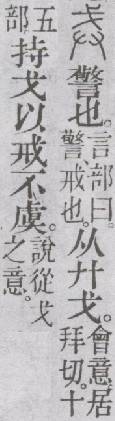 戒警也。言部曰。警戒也。从廾戈。會意。居拜切。十
五部持戈以戒不虞。說從戈之意。